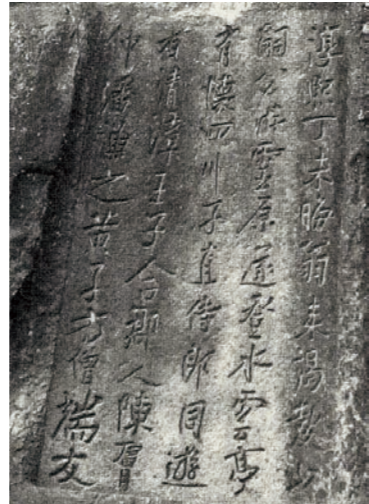 淳熙丁未晦翁来謁鼓山
嗣公游靈源遂登水雲亭
有懷四川子直侍郎同遊
者清漳王子合郡人陳膚
仲潘謙之黄子方僧端友